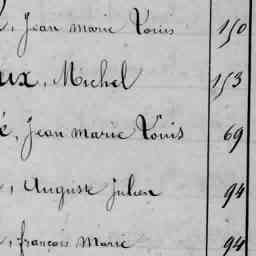 , Jean marie Louis 150
ux, Michel 153
é, Jean marie Louis 69
, Auguste Julien 94
, françois Marie 94